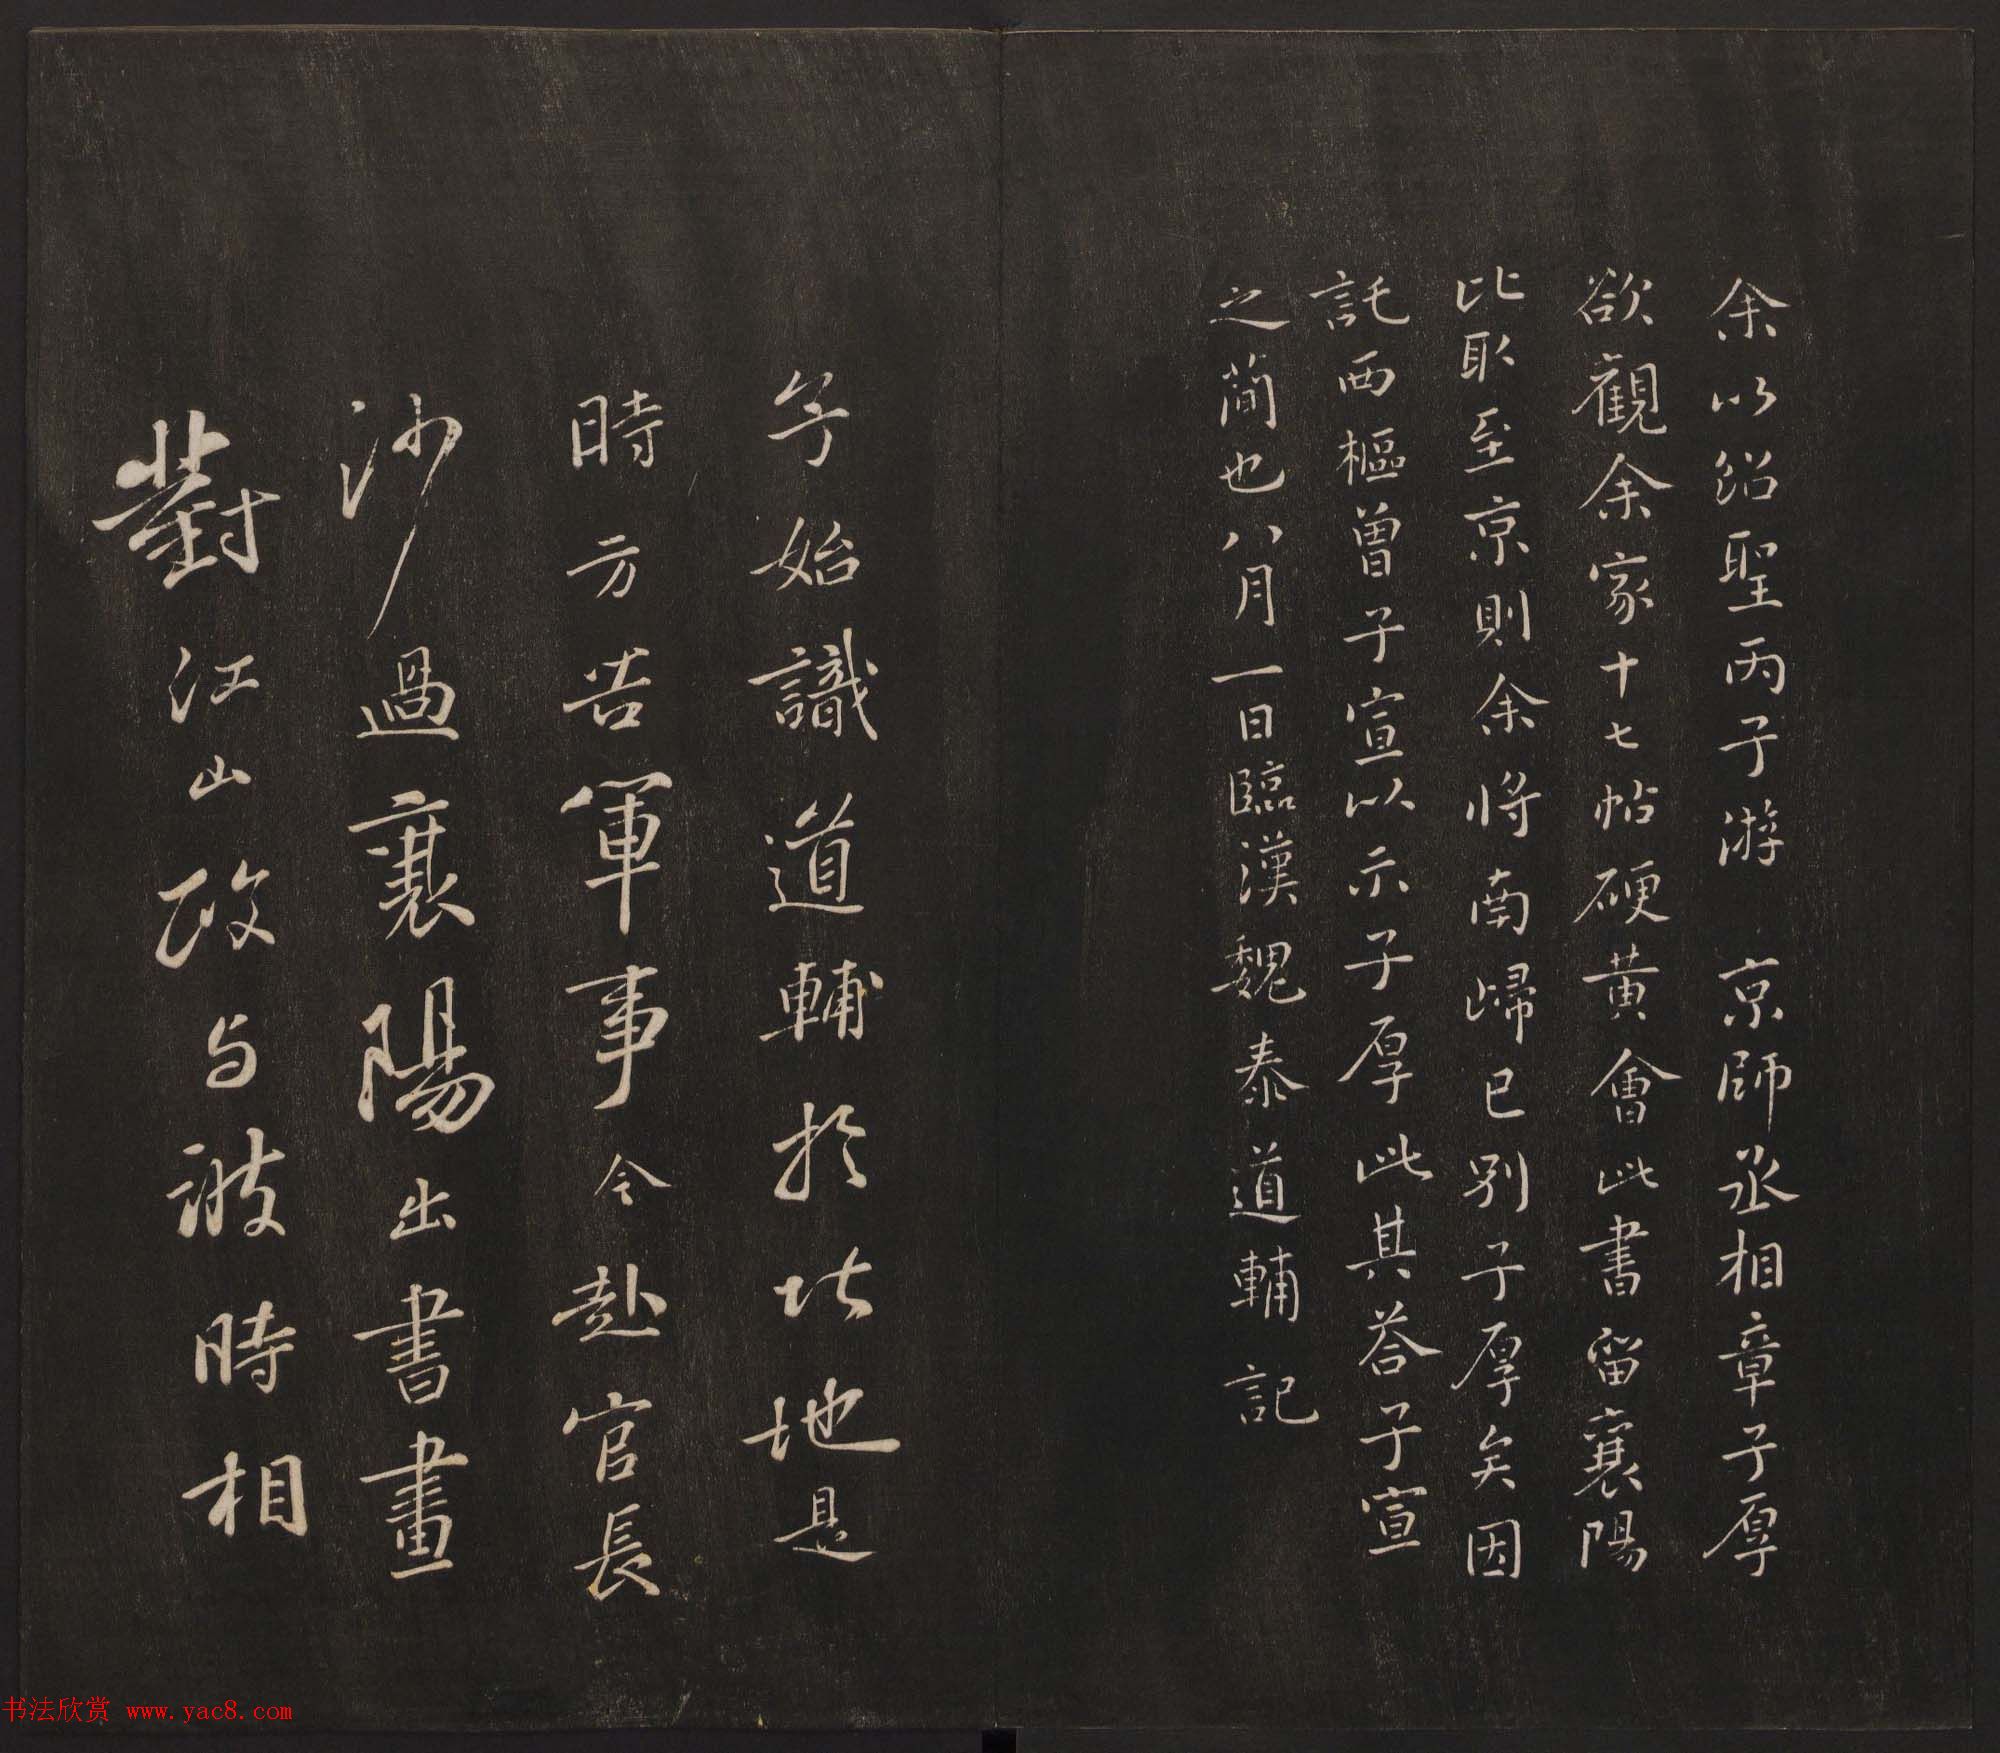 余以紹聖丙子游 京師丞相章子厚
欲觀余家十七帖硬黄會此書留襄陽
比取至京則余将南歸已别子厚矣因
託西樞曾子宣以示子厚此其荅子宣
之簡也八月一日臨漢魏泰道輔記
始識道輔於此地是
時方苦軍事今赴官長
沙過襄陽出書畫
對江山政与波時相
书法欣赏 www.yac8.com